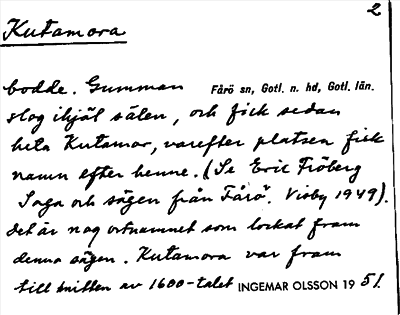 2
Kutamora
bodde. Gumman Fårö sn, Gotl. n. hd, Gotl. län.
slog ihjäl sälen, och fick sedan
heta Kutamor, varefter platsen fick
namn efter henne. (Se Eric Fröberg
Saga och sägen från Fårö. Visby 1949).
Det är nog ortnamnet som lockat fram
denna sägen. Kutamora var fram
till mitten av 1600-talet INGEMAR OLSSON 1951.